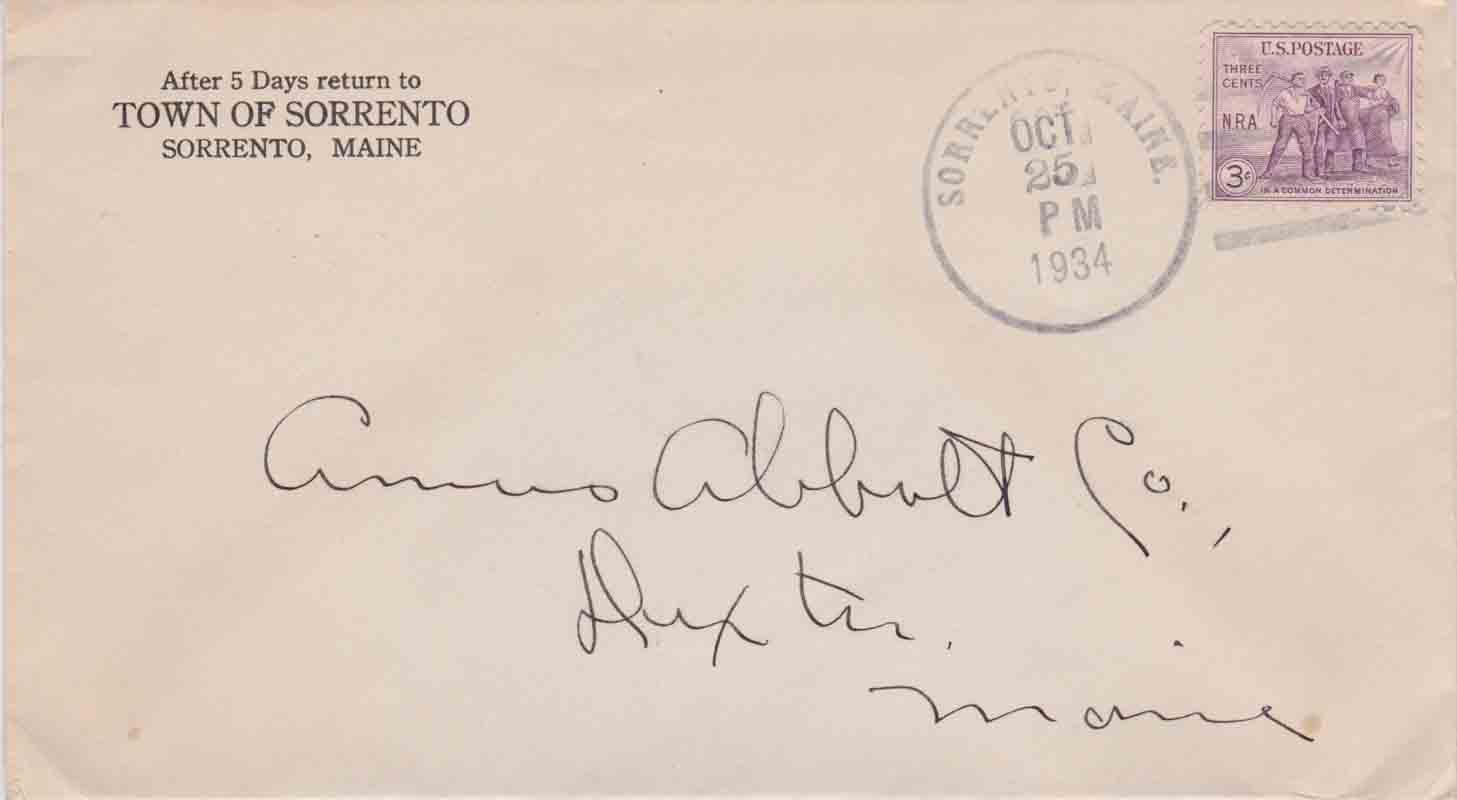 After 5 Days return to
TOWN OF SORRENTO
SORRENTO, MAINE
SORRENTO, MAINE.
OCT
25
PM
1934
U.S. POSTAGE
THREE
CENTS
N.R.A.
3¢
IN A COMMON DETERMINATION
Amos Abbott Co.,
Dexter,
Maine